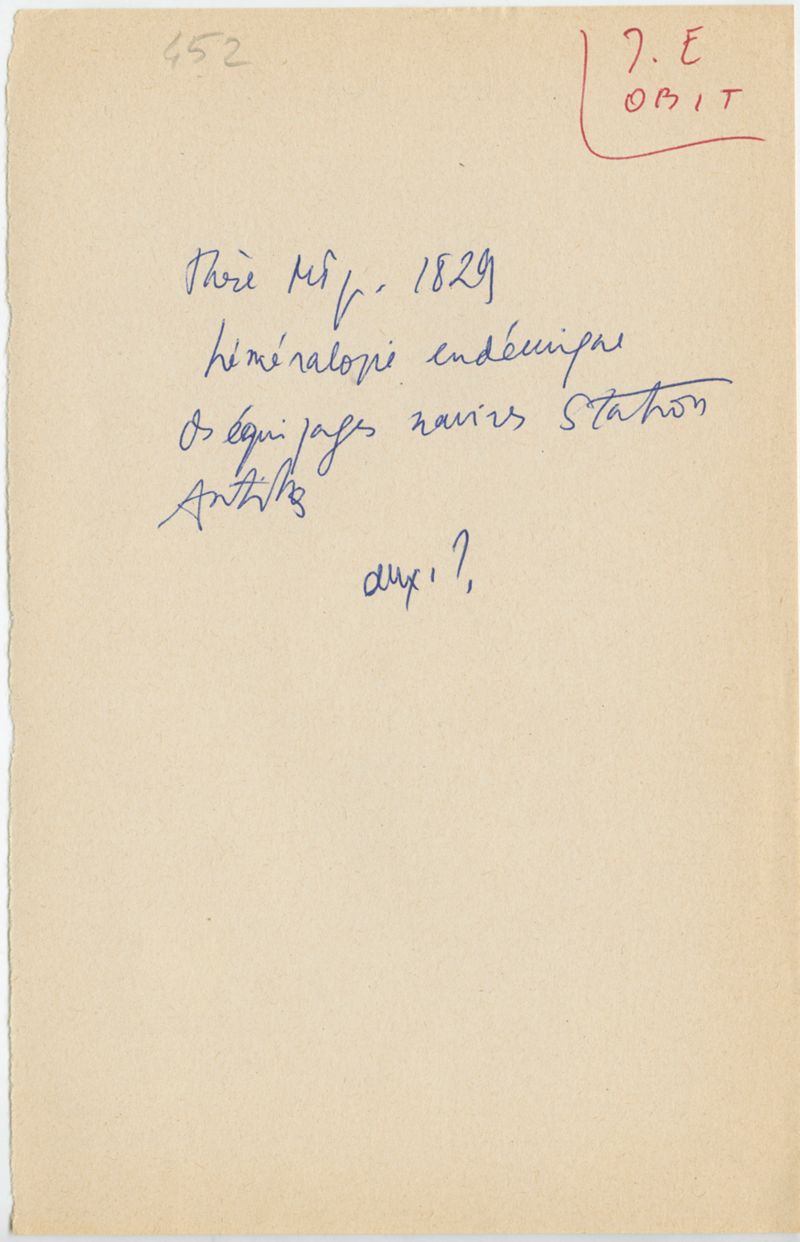 452
J. E
OBIT
Thèse Mtp. 1829
héméralopie endémique
ds équipages navires Station
Antilles
aux. ?